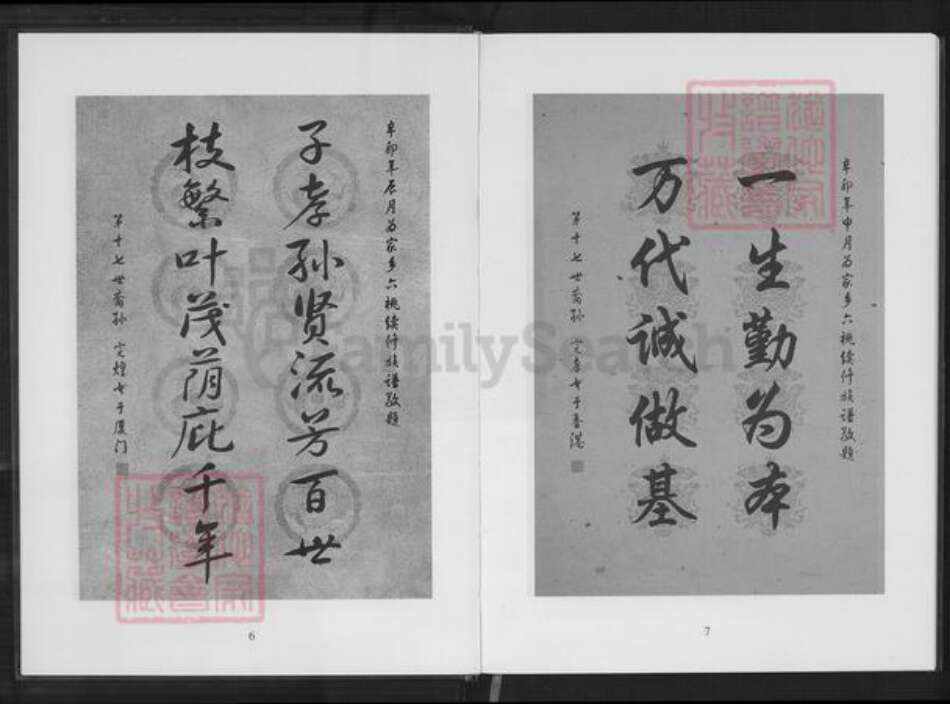 辛卯年辰月为家乡六桃续修族谱敬题
子孝孙贤流芳百世
枝繁叶茂荫庇千年
第十七世裔孙 煌书于厦门
6
辛卯年申月为家乡六桃续修族谱敬题
一生勤为本
万代诚做基
第十七世裔孙 书于香港
7
FamilySearch